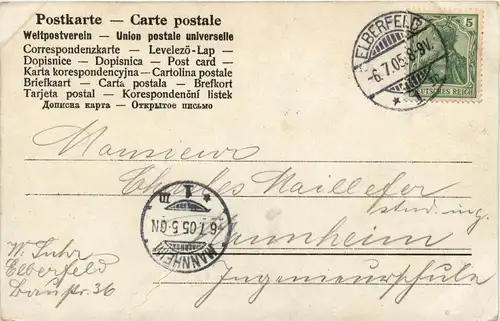 Postkarte — Carte postale
Weltpostverein — Union postale universelle
Correspondenzkarte — Levelező-Lap —
Dopisnice — Dopisnica — Post card —
Karta korespondencyjna — Cartolina postale
Briefkaart — Carta postala — Brefkort
Tarjeta postal — Korespondenční listek
Дописна карта — Открытое письмо
ELBERFELD
6.7.05.8-9V.
5
DEUTSCHES REICH
Monsieur
Charles Maillefer
stud. ing.
Mannheim
Ingenieurschule
MANNHEIM
6.7.05.5-6N
1
Elberfeld
36